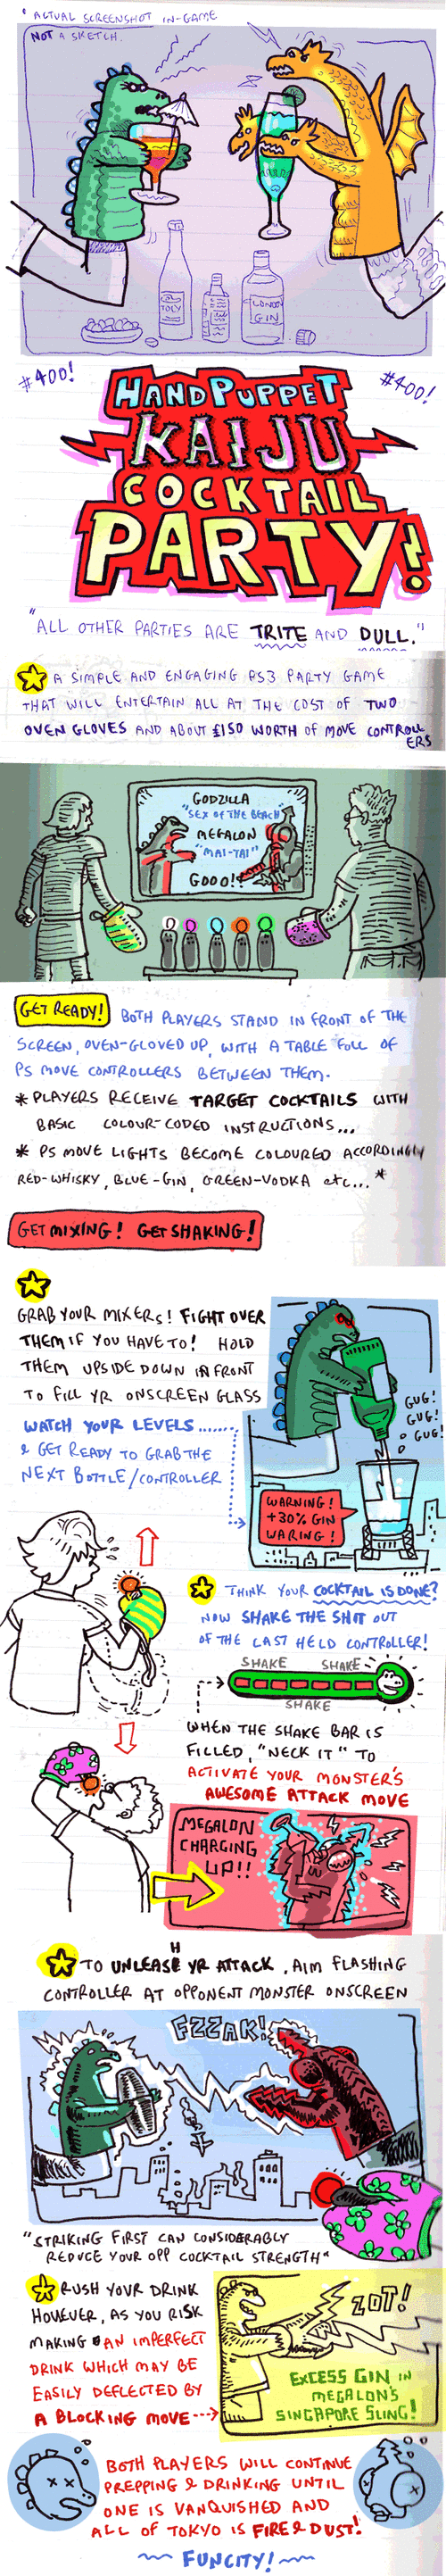 ' ACTUAL SCREENSHOT IN-GAME
NOT A SKETCH.
STOLY
LONDON
GIN
#400!
#400!
HAND PUPPET
KAIJU
COCKTAIL
PARTY!
"ALL OTHER PARTIES ARE TRITE AND DULL."
A SIMPLE AND ENGAGING PS3 PARTY GAME
THAT WILL ENTERTAIN ALL AT THE COST OF TWO
OVEN GLOVES AND ABOUT £150 WORTH OF MOVE CONTROLL
ERS
GODZILLA
"SEX OF THE BEACH"
MEGALON
"MAI-TAI"
GOOO!!
GET READY! BOTH PLAYERS STAND IN FRONT OF THE
SCREEN, OVEN-GLOVED UP, WITH A TABLE FULL OF
PS MOVE CONTROLLERS BETWEEN THEM.
* PLAYERS RECEIVE TARGET COCKTAILS WITH
BASIC COLOUR-CODED INSTRUCTIONS...
* PS MOVE LIGHTS BECOME COLOURED ACCORDINGLY
RED-WHISKY, BLUE-GIN, GREEN-VODKA etc...*
GET MIXING! GET SHAKING!
GRAB YOUR MIXERS! FIGHT OVER
THEM IF YOU HAVE TO! HOLD
THEM UPSIDE DOWN IN FRONT
TO FILL YR ONSCREEN GLASS
WATCH YOUR LEVELS......
& GET READY TO GRAB THE
NEXT BOTTLE/CONTROLLER
GUG!
GUG!
GUG!
WARNING!
+30% GIN
WARING!
THINK YOUR COCKTAIL IS DONE?
NOW SHAKE THE SHIT OUT
OF THE LAST HELD CONTROLLER!
SHAKE SHAKE
SHAKE
WHEN THE SHAKE BAR IS
FILLED, "NECK IT" TO
ACTIVATE YOUR MONSTER'S
AWESOME ATTACK MOVE
MEGALON
CHARGING
UP!!
TO UNLEASH YR ATTACK, AIM FLASHING
CONTROLLER AT OPPONENT MONSTER ONSCREEN
FZZAK!
"STRIKING FIRST CAN CONSIDERABLY
REDUCE YOUR OPP COCKTAIL STRENGTH"
RUSH YOUR DRINK
HOWEVER, AS YOU RISK
MAKING AN IMPERFECT
DRINK WHICH MAY BE
EASILY DEFLECTED BY
A BLOCKING MOVE
ZOT!
EXCESS GIN IN
MEGALON'S
SINGAPORE SLING!
BOTH PLAYERS WILL CONTINUE
PREPPING & DRINKING UNTIL
ONE IS VANQUISHED AND
ALL OF TOKYO IS FIRE & DUST!
~ FUNCITY! ~